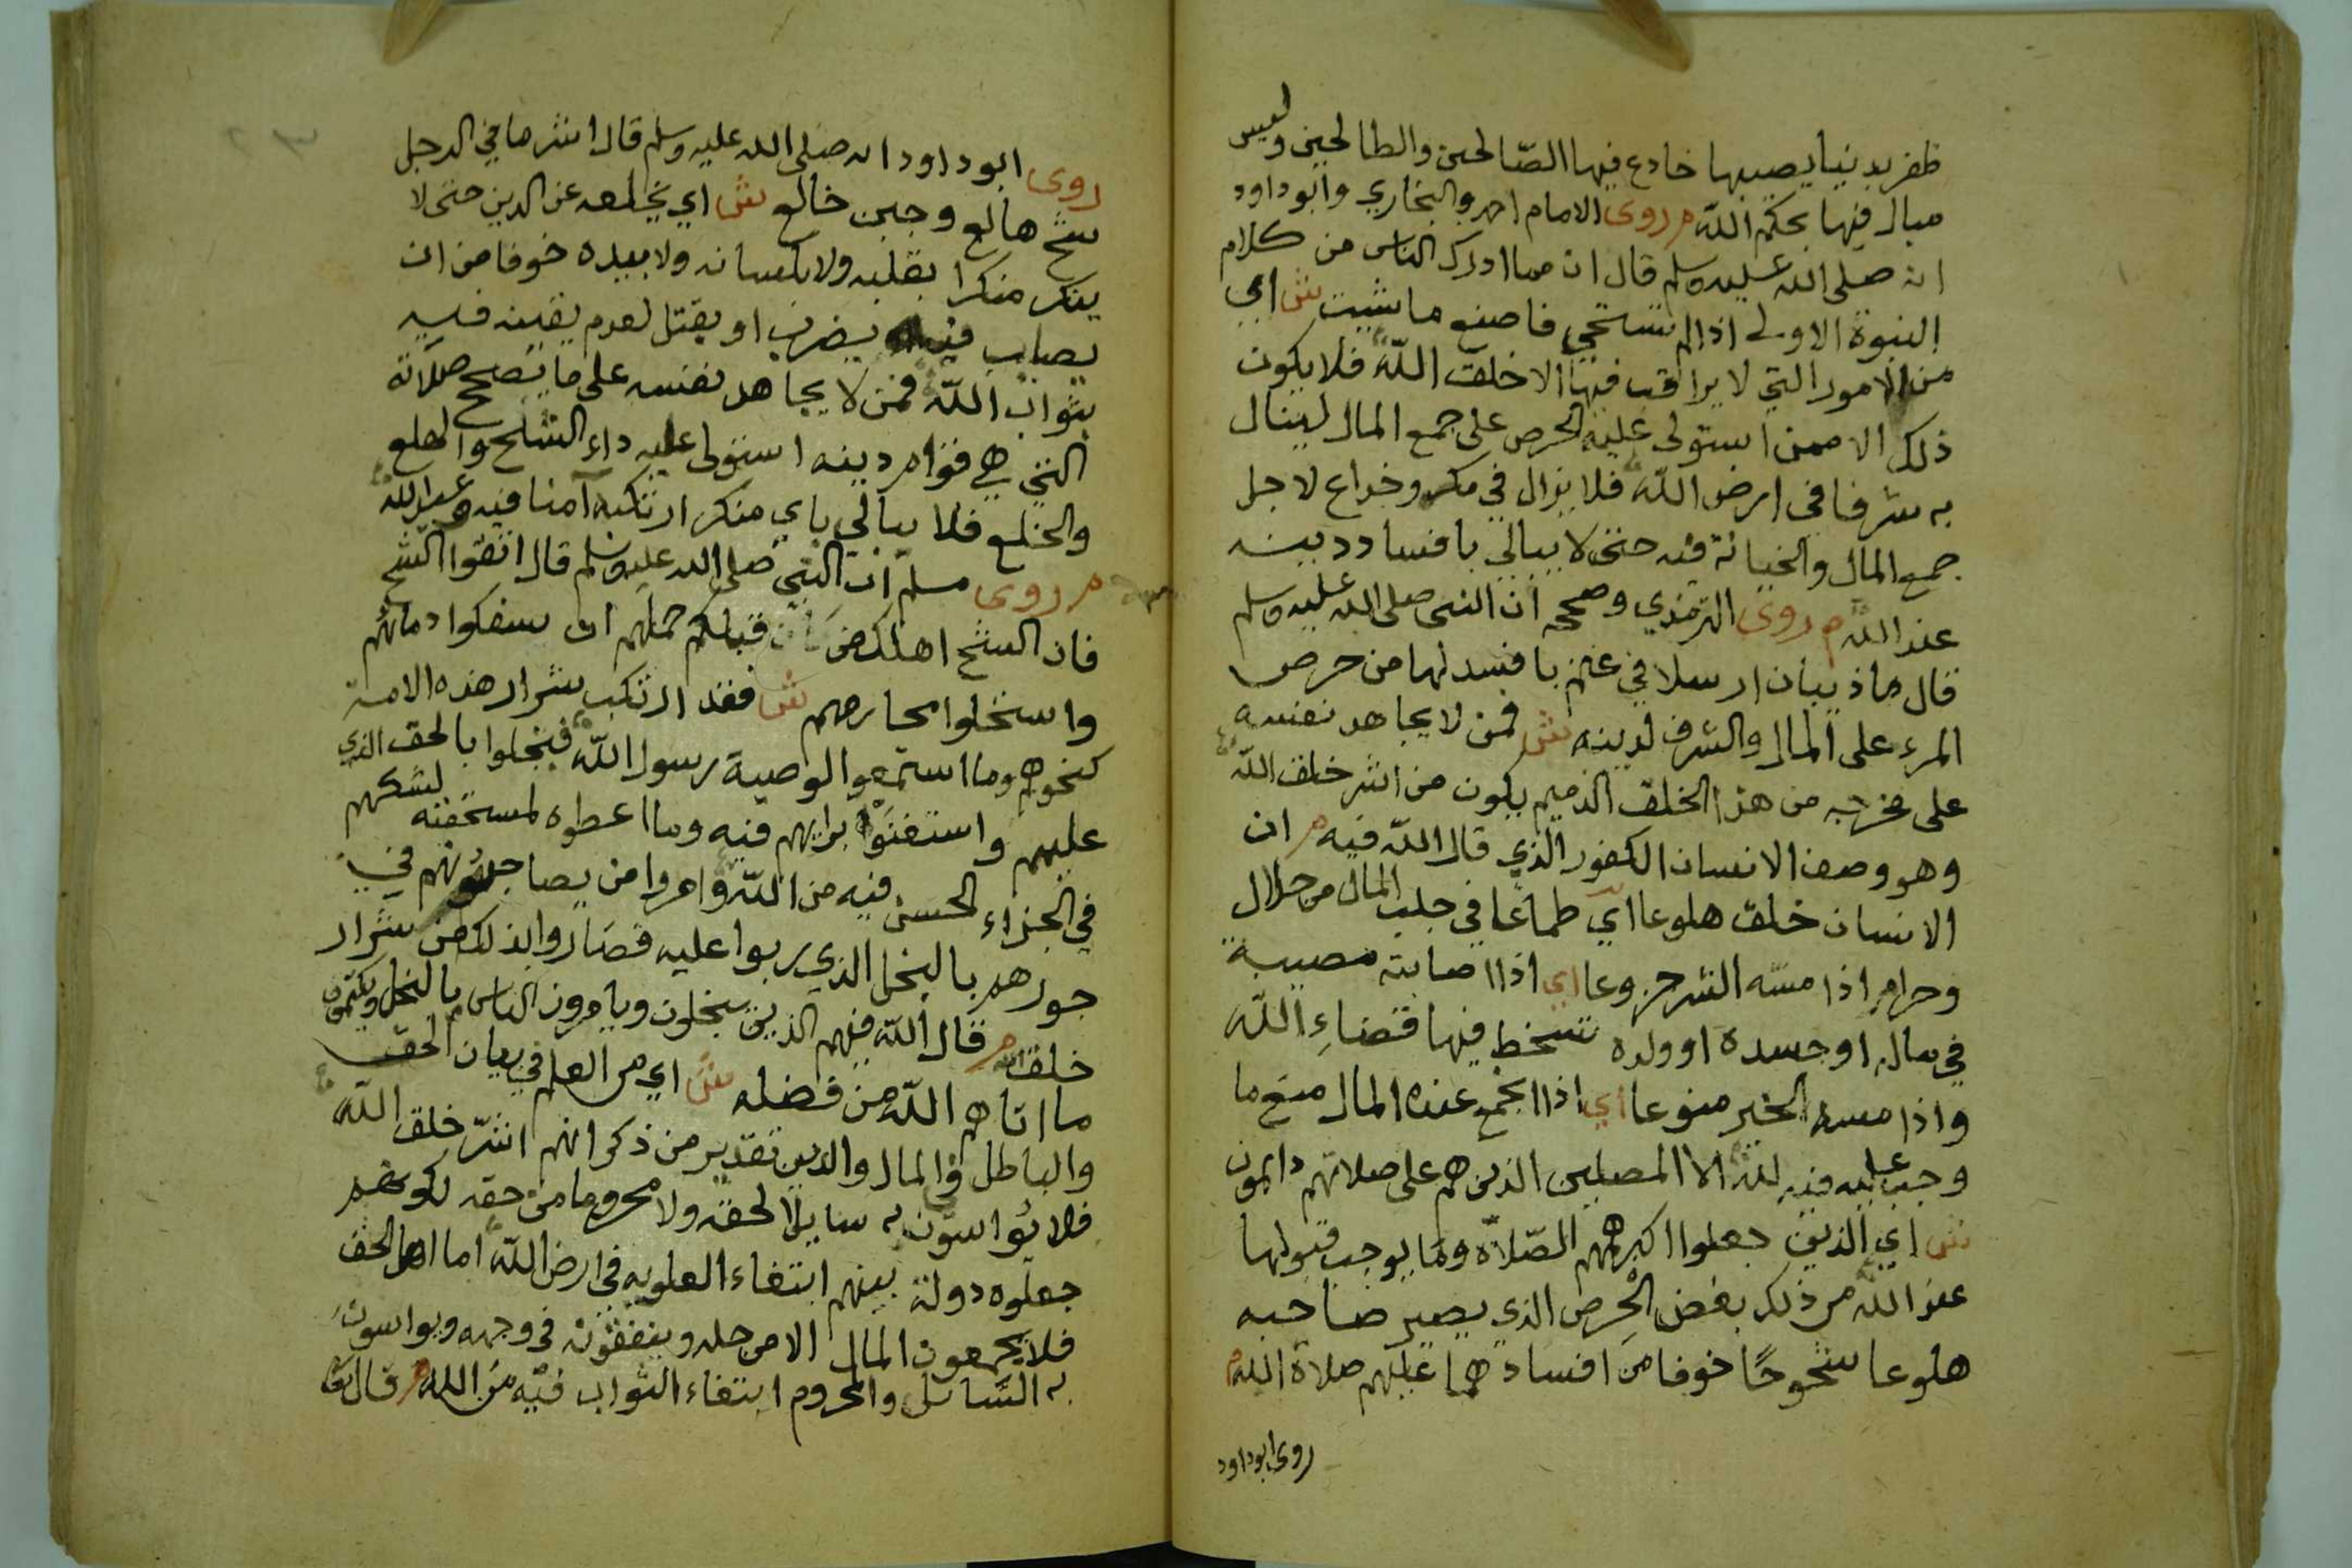 ظفر بدنيا يصيبها خادع فيها الصالحين والطالحين وليس
مبال فيها بحكم الله م روى الامام احمد والبخاري وابو داود
انه صلى الله عليه وسلم قال ان مما ادرك الناس من كلام
النبوة الاولى اذا لم تستحي فاصنع ما شيت ش اي
من الامور التي لا يراقب فيها الا خلق الله فلا يكون
ذلك الا ممن استولى عليه الحرص على جمع المال لينال
به شرفا في ارض الله فلا يزال في مكر وخداع لاجل
جمع المال والخيانة فيه حتى لا يبالي بافساد دينه
عند الله م روى الترمذي وصححه ان النبي صلى الله عليه وسلم
قال ما ذيبان ارسلا في غنم بافسد لها من حرص
المرء على المال والشرف لدينه ش فمن لا يجاهد نفسه
على مخرجه من هذا الخلق الذميم يكون من اشر خلق الله
وهو وصف الانسان الكفور الذي قال الله فيه م ان
الانسان خلق هلوعا اي طماعا في جلب المال من حلال
وحرام اذا مسه الشر جزوعا اي اذا اصابته مصيبة
في ماله او جسده او ولده تسخط فيها قضاء الله
واذا مسه الخير منوعا اي اذا اجتمع عنده المال منع ما
وجب عليه فيه لله الا المصلين الذين هم على صلاتهم دايمون
ش اي الذين جعلوا اكبر همهم الصلاة وما يوجب قبولها
عند الله من ذلك بغض الحرص الذي يصير صاحبه
هلوعا شحوحا خوفا من افسادهما عليهم صلاة الله م
روى ابو داود
روى ابو داود انه صلى الله عليه وسلم قال اشر ما في الرجل
شح هالع وجبن خالع ش اي يخلعه عن الدين حتى لا
ينكر منكرا بقلبه ولا بلسانه ولا بيده خوفا من ان
يصاب فيه بضرب او يقتل لعدم يقينه فيه
بثواب الله فمن لا يجاهد نفسه على ما يصحح صلاته
التي هي قوام دينه استولى عليه داء الشح والهلع
والخلع فلا يبالي باي منكر ارتكبه آمنا فيه وعيد الله
م روى مسلم ان النبي صلى الله عليه وسلم قال اتقوا الشح
فان الشح اهلك من كان قبلكم حملهم ان سفكوا دمائهم
واستحلوا محارمهم ش فقد ارتكب شرار هذه الامة
كنحوهم وما استمعوا لوصية رسول الله فبخلوا بالحق الذي
عليهم واستغنوا برايهم فيه وما اعطوه لمستحقه لشكهم
في الجزاء الحسن فيه من الله وامروا من يصاحبونهم في
جورهم بالبخل الذي ربوا عليه فصاروا بذلك من شرار
خلقه م قال الله فيهم الذين يبخلون ويامرون الناس بالبخل ويكتمون
ما اتاهم الله من فضله ش اي من العلم في بيان الحق
والباطل في المال والدين تقدير من ذكر انهم اشر خلق الله
فلا يواسون به سايلا لحقه ولا محروما من حقه لكونهم
جعلوه دولة بينهم ابتغاء العلو به في ارض الله اما اهل الحق
فلا يجمعون المال الا من حله وينفقونه في وجهه ويواسون
به السائل والمحروم ابتغاء الثواب فيه من الله م قال تعا